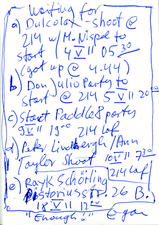 Waiting for
a) Dulcolax - shoot @
214 w/ M. Nispel to
start 4 V 11 05 30
(got up @ 4.44)
b) Don Julio Party to
start @ 214 5 V 11 20
c) start Paddle8 party
9 V 11 19 00 214 Laf
d) Peter Lindbergh / Ann
Taylor Shoot 10 V 11 7 30
214 Laf
e) Ray K Schörling
Pistoriusstr. 26 B.
18 V 11 12
"Enough!" Egan